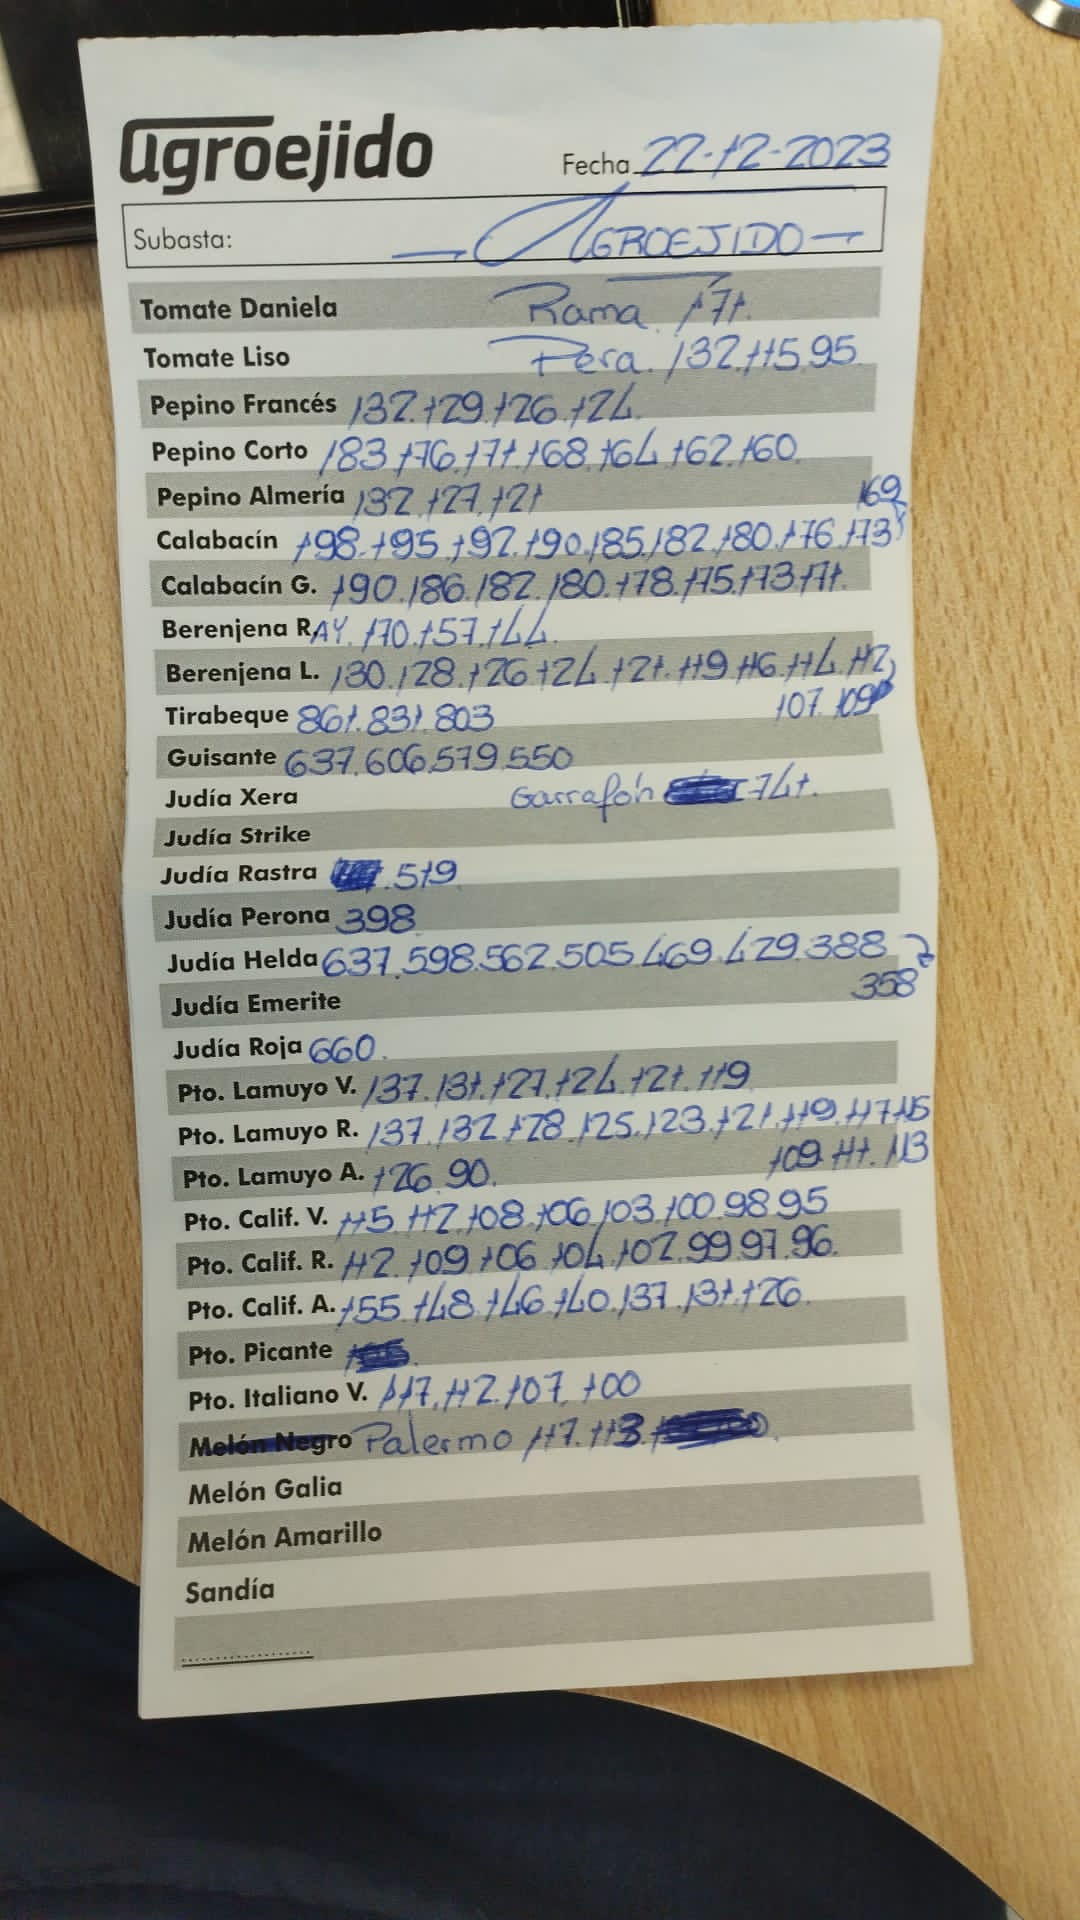 agroejido
Fecha 22-12-2023
Subasta: — AGROEJIDO —
Tomate Daniela Rama 171.
Tomate Liso Pera. 132.115.95
Pepino Francés 132.129.126.124.
Pepino Corto 183.176.171.168.164.162.160.
Pepino Almería 132.127.121
169
Calabacín 198.195.192.190.185.182.180.176.173
Calabacín G. 190.186.182.180.178.175.173.171.
Berenjena R.AY. 170.157.144.
Berenjena L. 130.128.126.124.121.119.116.114.112
107.109
Tirabeque 861.831.803
Guisante 637.606.579.550
Judía Xera Garrafón 741.
Judía Strike
Judía Rastra .519
Judía Perona 398
Judía Helda 637.598.562.505.469.429.388
358
Judía Emerite
Judía Roja 660.
Pto. Lamuyo V. 137.131.127.124.121.119
Pto. Lamuyo R. 137.132.128.125.123.121.119.117.115
109.111.113
Pto. Lamuyo A. 126.90.
Pto. Calif. V. 115.112.108.106.103.100.98.95
Pto. Calif. R. 112.109.106.104.102.99.97.96.
Pto. Calif. A. 155.148.146.140.137.131.126.
Pto. Picante
Pto. Italiano V. 117.112.107.100
Melón Negro Palermo 117.113.
Melón Galia
Melón Amarillo
Sandía